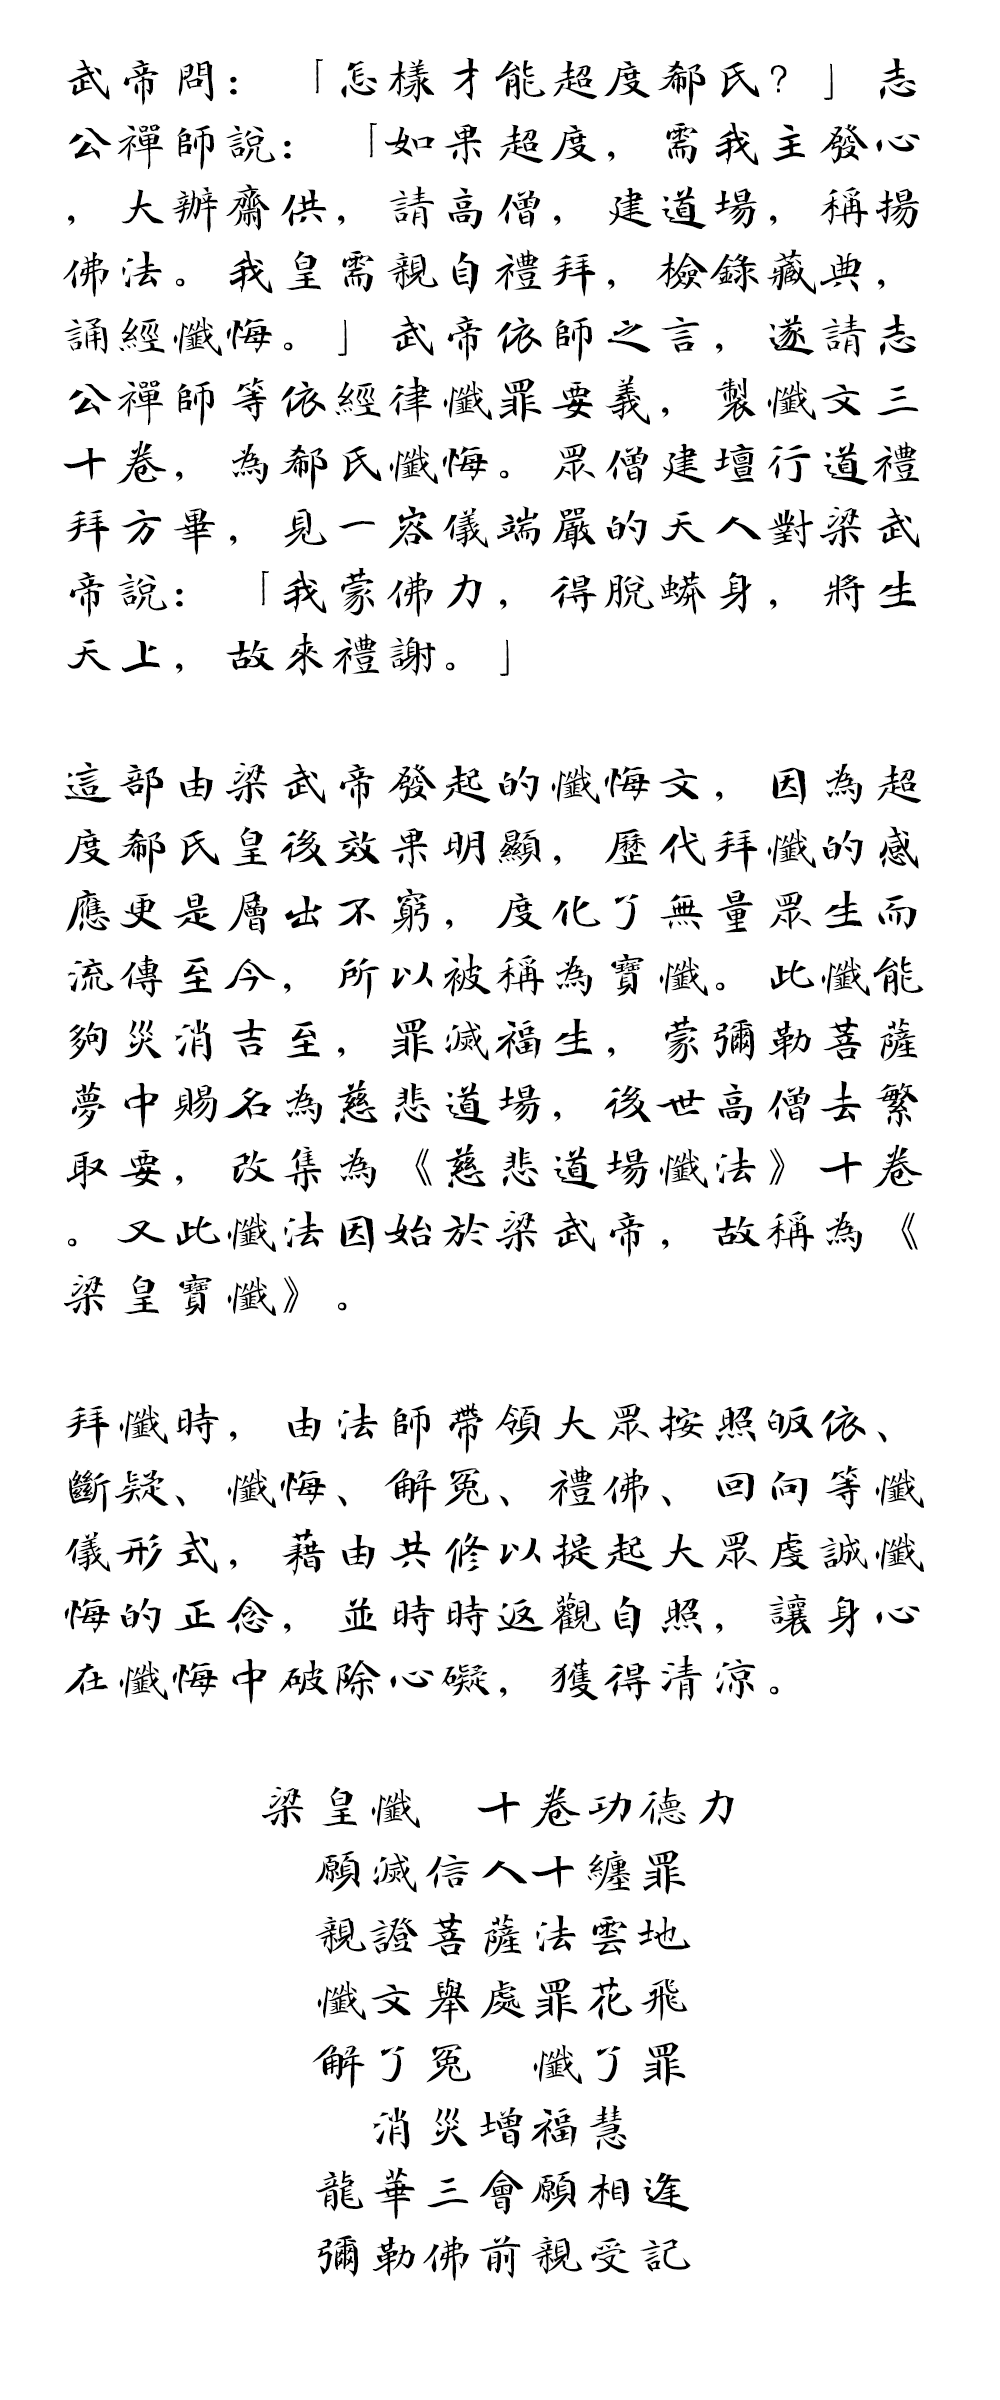 武帝問：「怎樣才能超度郗氏？」志
公禪師說：「如果超度，需我主發心
，大辦齋供，請高僧，建道場，稱揚
佛法。我皇需親自禮拜，檢錄藏典，
誦經懺悔。」武帝依師之言，遂請志
公禪師等依經律懺罪要義，製懺文三
十卷，為郗氏懺悔。眾僧建壇行道禮
拜方畢，見一容儀端嚴的天人對梁武
帝說：「我蒙佛力，得脫蟒身，將生
天上，故來禮謝。」
這部由梁武帝發起的懺悔文，因為超
度郗氏皇後效果明顯，歷代拜懺的感
應更是層出不窮，度化了無量眾生而
流傳至今，所以被稱為寶懺。此懺能
夠災消吉至，罪滅福生，蒙彌勒菩薩
夢中賜名為慈悲道場，後世高僧去繁
取要，改集為《慈悲道場懺法》十卷
。又此懺法因始於梁武帝，故稱為《
梁皇寶懺》。
拜懺時，由法師帶領大眾按照皈依、
斷疑、懺悔、解冤、禮佛、回向等懺
儀形式，藉由共修以提起大眾虔誠懺
悔的正念，並時時返觀自照，讓身心
在懺悔中破除心礙，獲得清涼。
梁皇懺　十卷功德力
願滅信人十纏罪
親證菩薩法雲地
懺文舉處罪花飛
解了冤　懺了罪
消災增福慧
龍華三會願相逢
彌勒佛前親受記